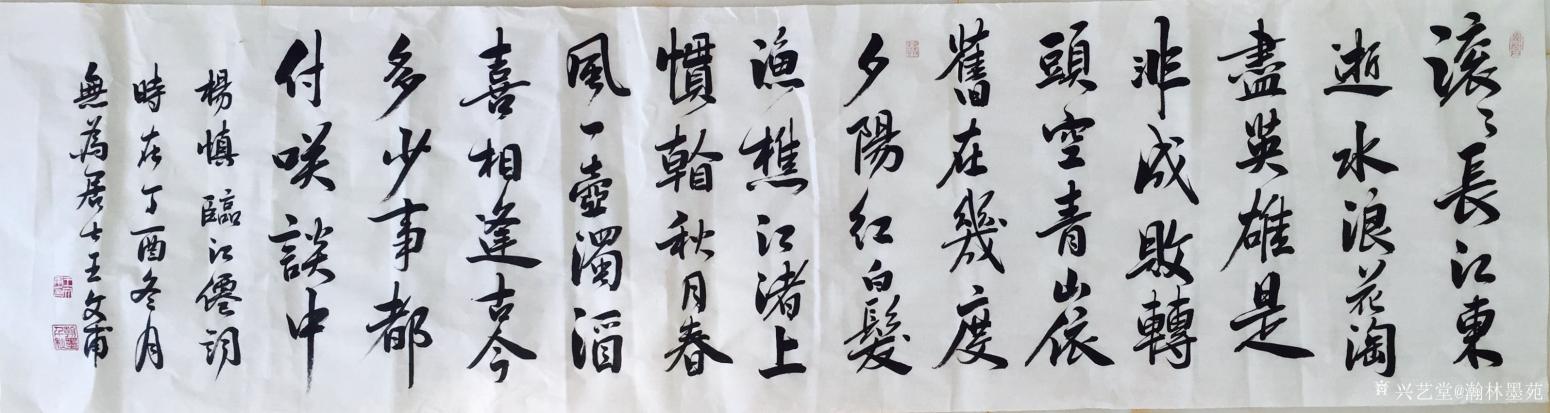 滾〻長江東
逝水浪花淘
盡英雄是
非成敗轉
頭空青山依
舊在幾度
夕陽紅白髮
漁樵江渚上
慣看秋月春
風一壺濁酒
喜相逢古今
多少事都
付咲談中
楊慎臨江僊詞
時在丁酉冬月
無為居士王文甫
兴艺堂@瀚林墨苑